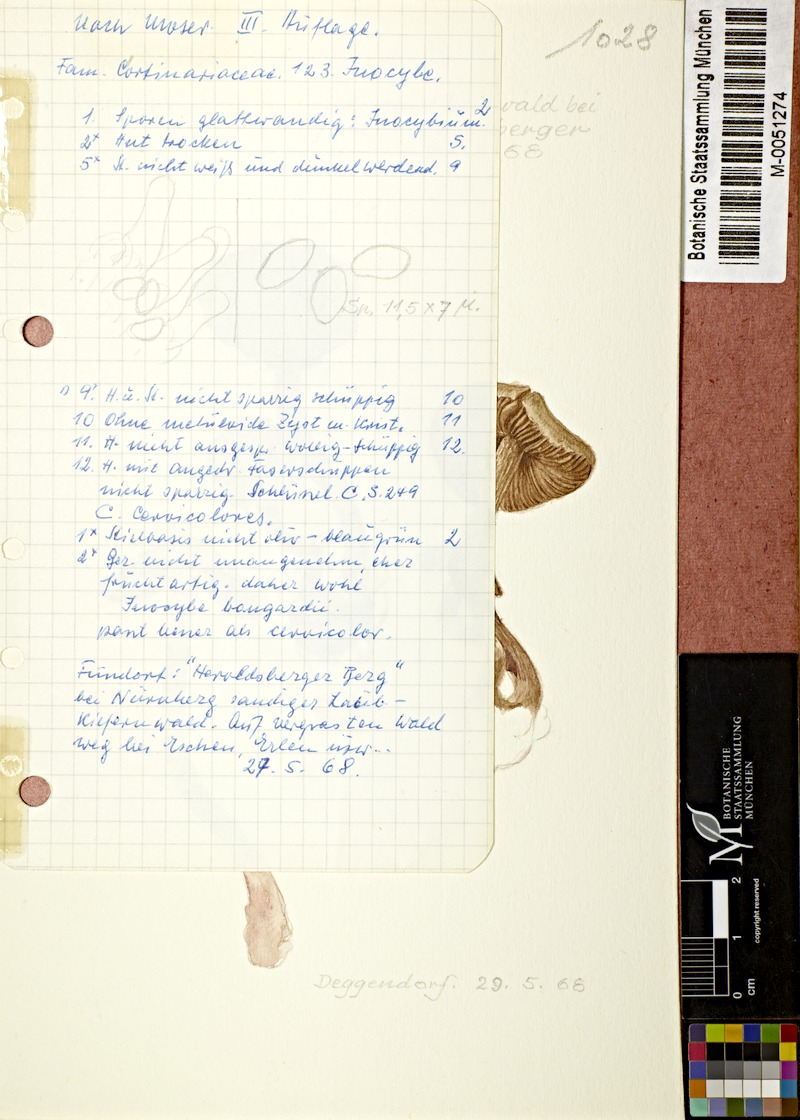 1028
Nach Moser. III. Auflage.
Fam. Cortinariaceae. 123. Inocybe.
1. Sporen glattwandig: Inocybium. 2
2* Hut trocken 5.
5* St. nicht weiß und dunkel werdend. 9
wald bei
berger
68
Sp. 11,5 x 7 µ.
9* H. u. St. nicht sparrig schuppig 10
10 Ohne metuloide Zyst. m. Krist. 11
11. H. nicht ausgespr. wollig-schuppig 12.
12. H. mit angedr. Faserschuppen
nicht sparrig. Schlüssel. C. S. 249
C. Cervicolores.
1* Stielbasis nicht oliv-blaugrün 2
2* Ger. nicht unangenehm, eher
fruchtartig. daher wohl
Inocybe bongardii.
passt besser als cervicolor.
Fundort: "Heroldsberger Berg"
bei Nürnberg sandiger Laub-
Kiefernwald. Auf vergrasten Wald
weg bei Eschen, Erlen usw...
27. 5. 68.
Deggendorf. 29. 5. 68
Botanische Staatssammlung München
M-0051274
BOTANISCHE
STAATSSAMMLUNG
MÜNCHEN
0 1 2
cm
copyright reserved